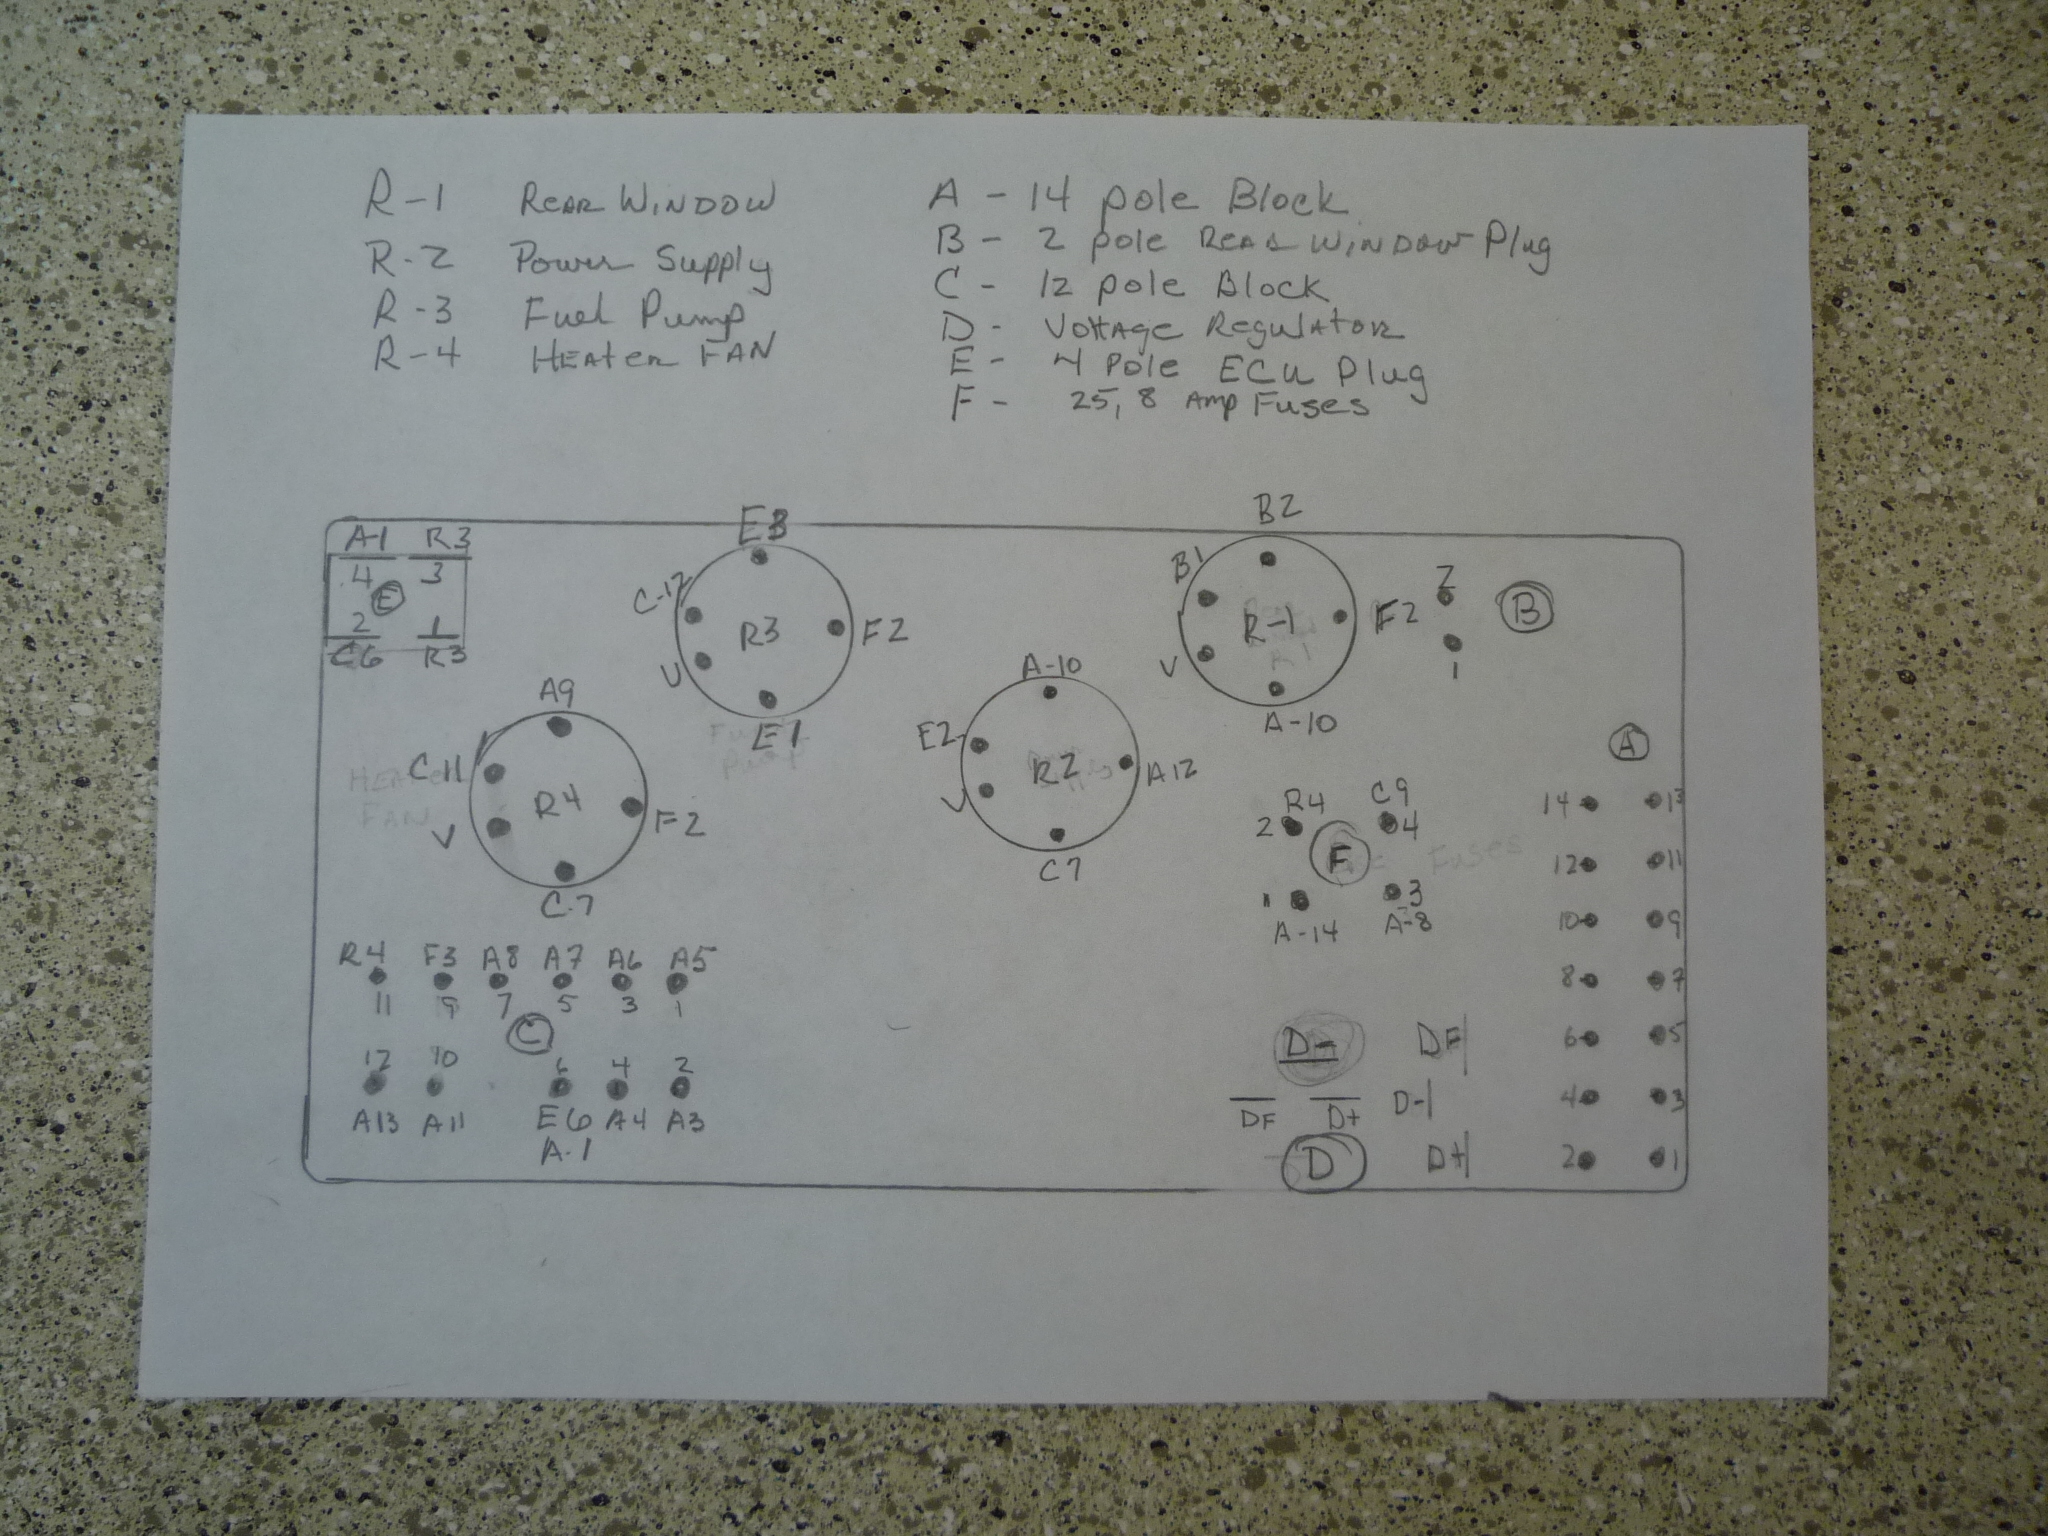 R-1 REAR WINDOW
R-2 Power Supply
R-3 Fuel Pump
R-4 HEATER FAN
A - 14 pole Block
B - 2 pole REAR WINDOW Plug
C - 12 pole Block
D - Voltage Regulator
E - 4 Pole ECU Plug
F - 25, 8 Amp Fuses
A-1 R3
4 3
E
2 1
C6 R3
E3
C-12
R3 F2
V
E1
B2
B1
R-1 F2
V
A-10
2
B
1
A9
C11
R4
V F2
C.7
A-10
E2
R2 A12
V
C7
A
R4 C9
2 4
F
1 3
A-14 A-8
14 13
12 11
10 9
8 7
6 5
4 3
2 1
R4 F3 A8 A7 A6 A5
11 9 7 5 3 1
C
12 10 6 4 2
A13 A11 E6 A4 A3
A-1
D- DF
DF D+ D-
D D+
HEATER
FAN
Fuel
Pump
Fuses